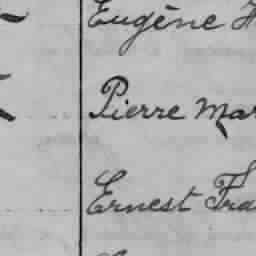 Eugène
Pierre Mar
Ernest Fra